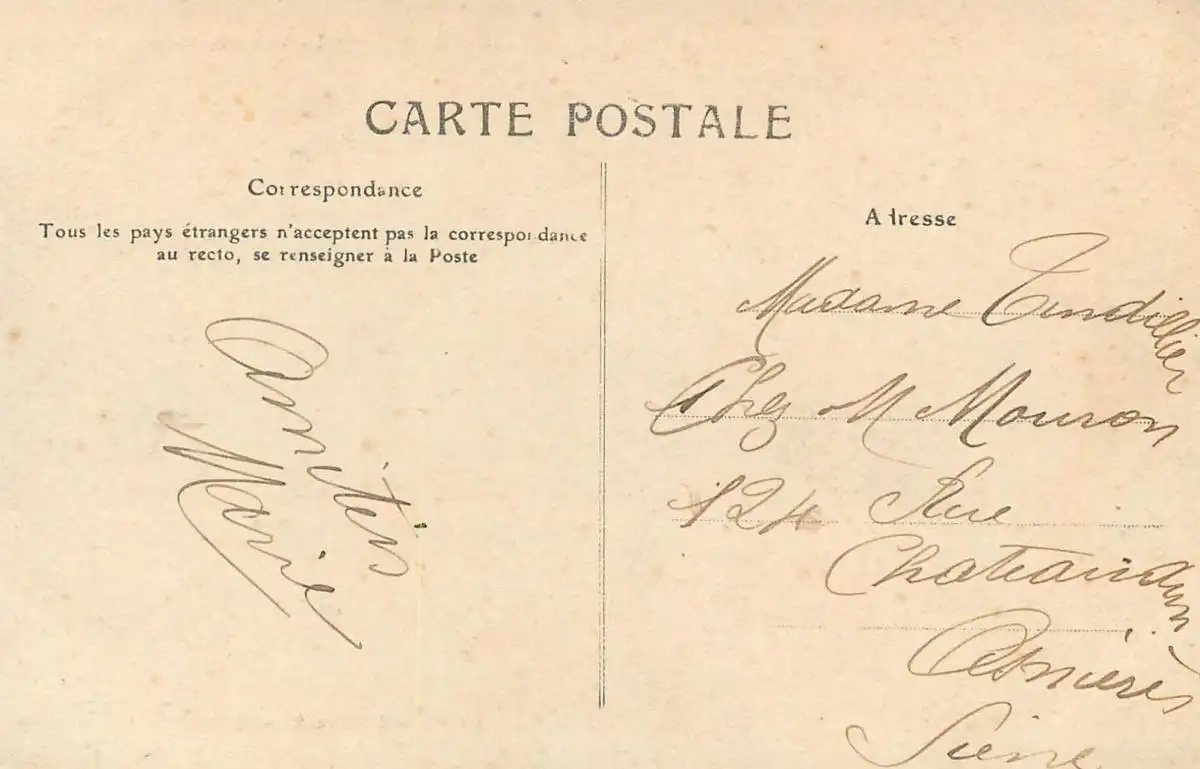 CARTE POSTALE
Correspondance
Tous les pays étrangers n'acceptent pas la correspondance
au recto, se renseigner à la Poste
Amitiés
Marie
Adresse
Madame Tendillier
Chez M Mouron
124 Rue
Chateaudun
Asnières
Seine